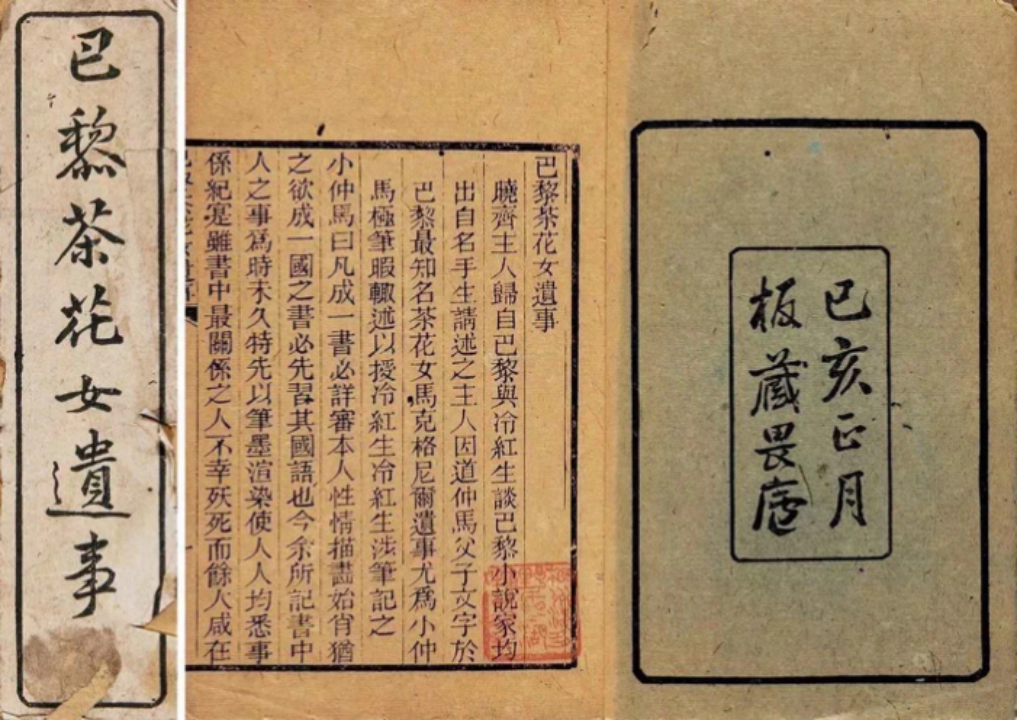 巴黎茶花女遺事
巴黎茶花女遺事
曉齋主人歸自巴黎與冷紅生談巴黎小說家均
出自名手生請述之主人因道仲馬父子文字於
巴黎最知名茶花女馬克格尼爾遺事尤為小仲
馬極筆暇輙述以授冷紅生冷紅生涉筆記之
小仲馬曰凡成一書必詳審本人性情描畫始肖猶
之欲成一國之書必先習其國語也今余所記書中
人之事為時未久特先以筆墨渲染使人人均悉事
係紀寔雖書中最關係之人不幸殀死而餘人咸在
己亥正月
板藏畏廬